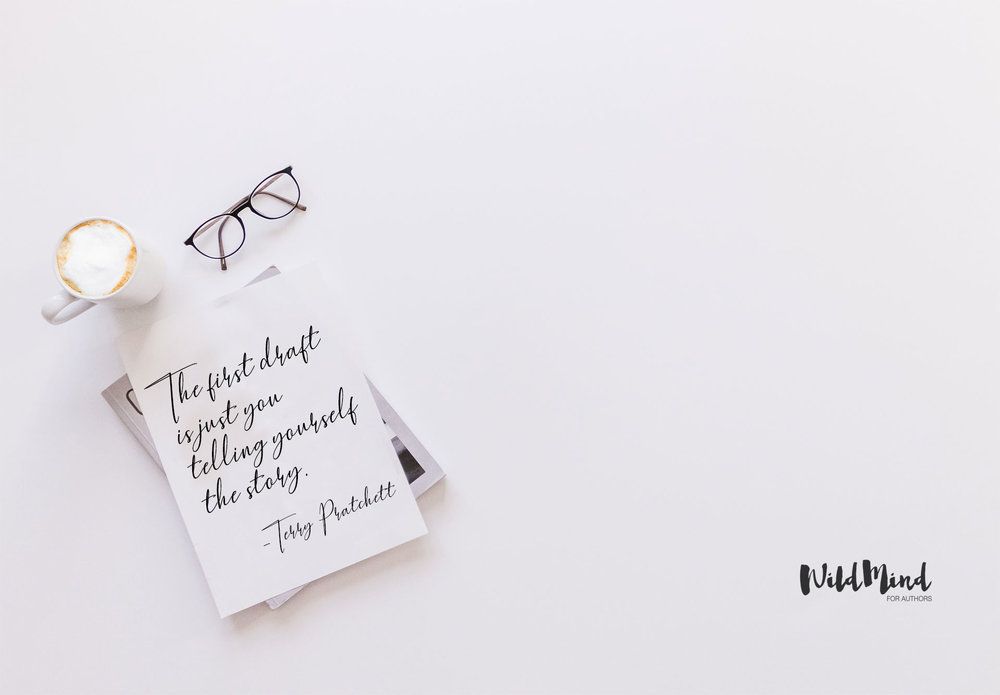 The first draft
is just you
telling yourself
the story.
-Terry Pratchett
WildMind
FOR AUTHORS